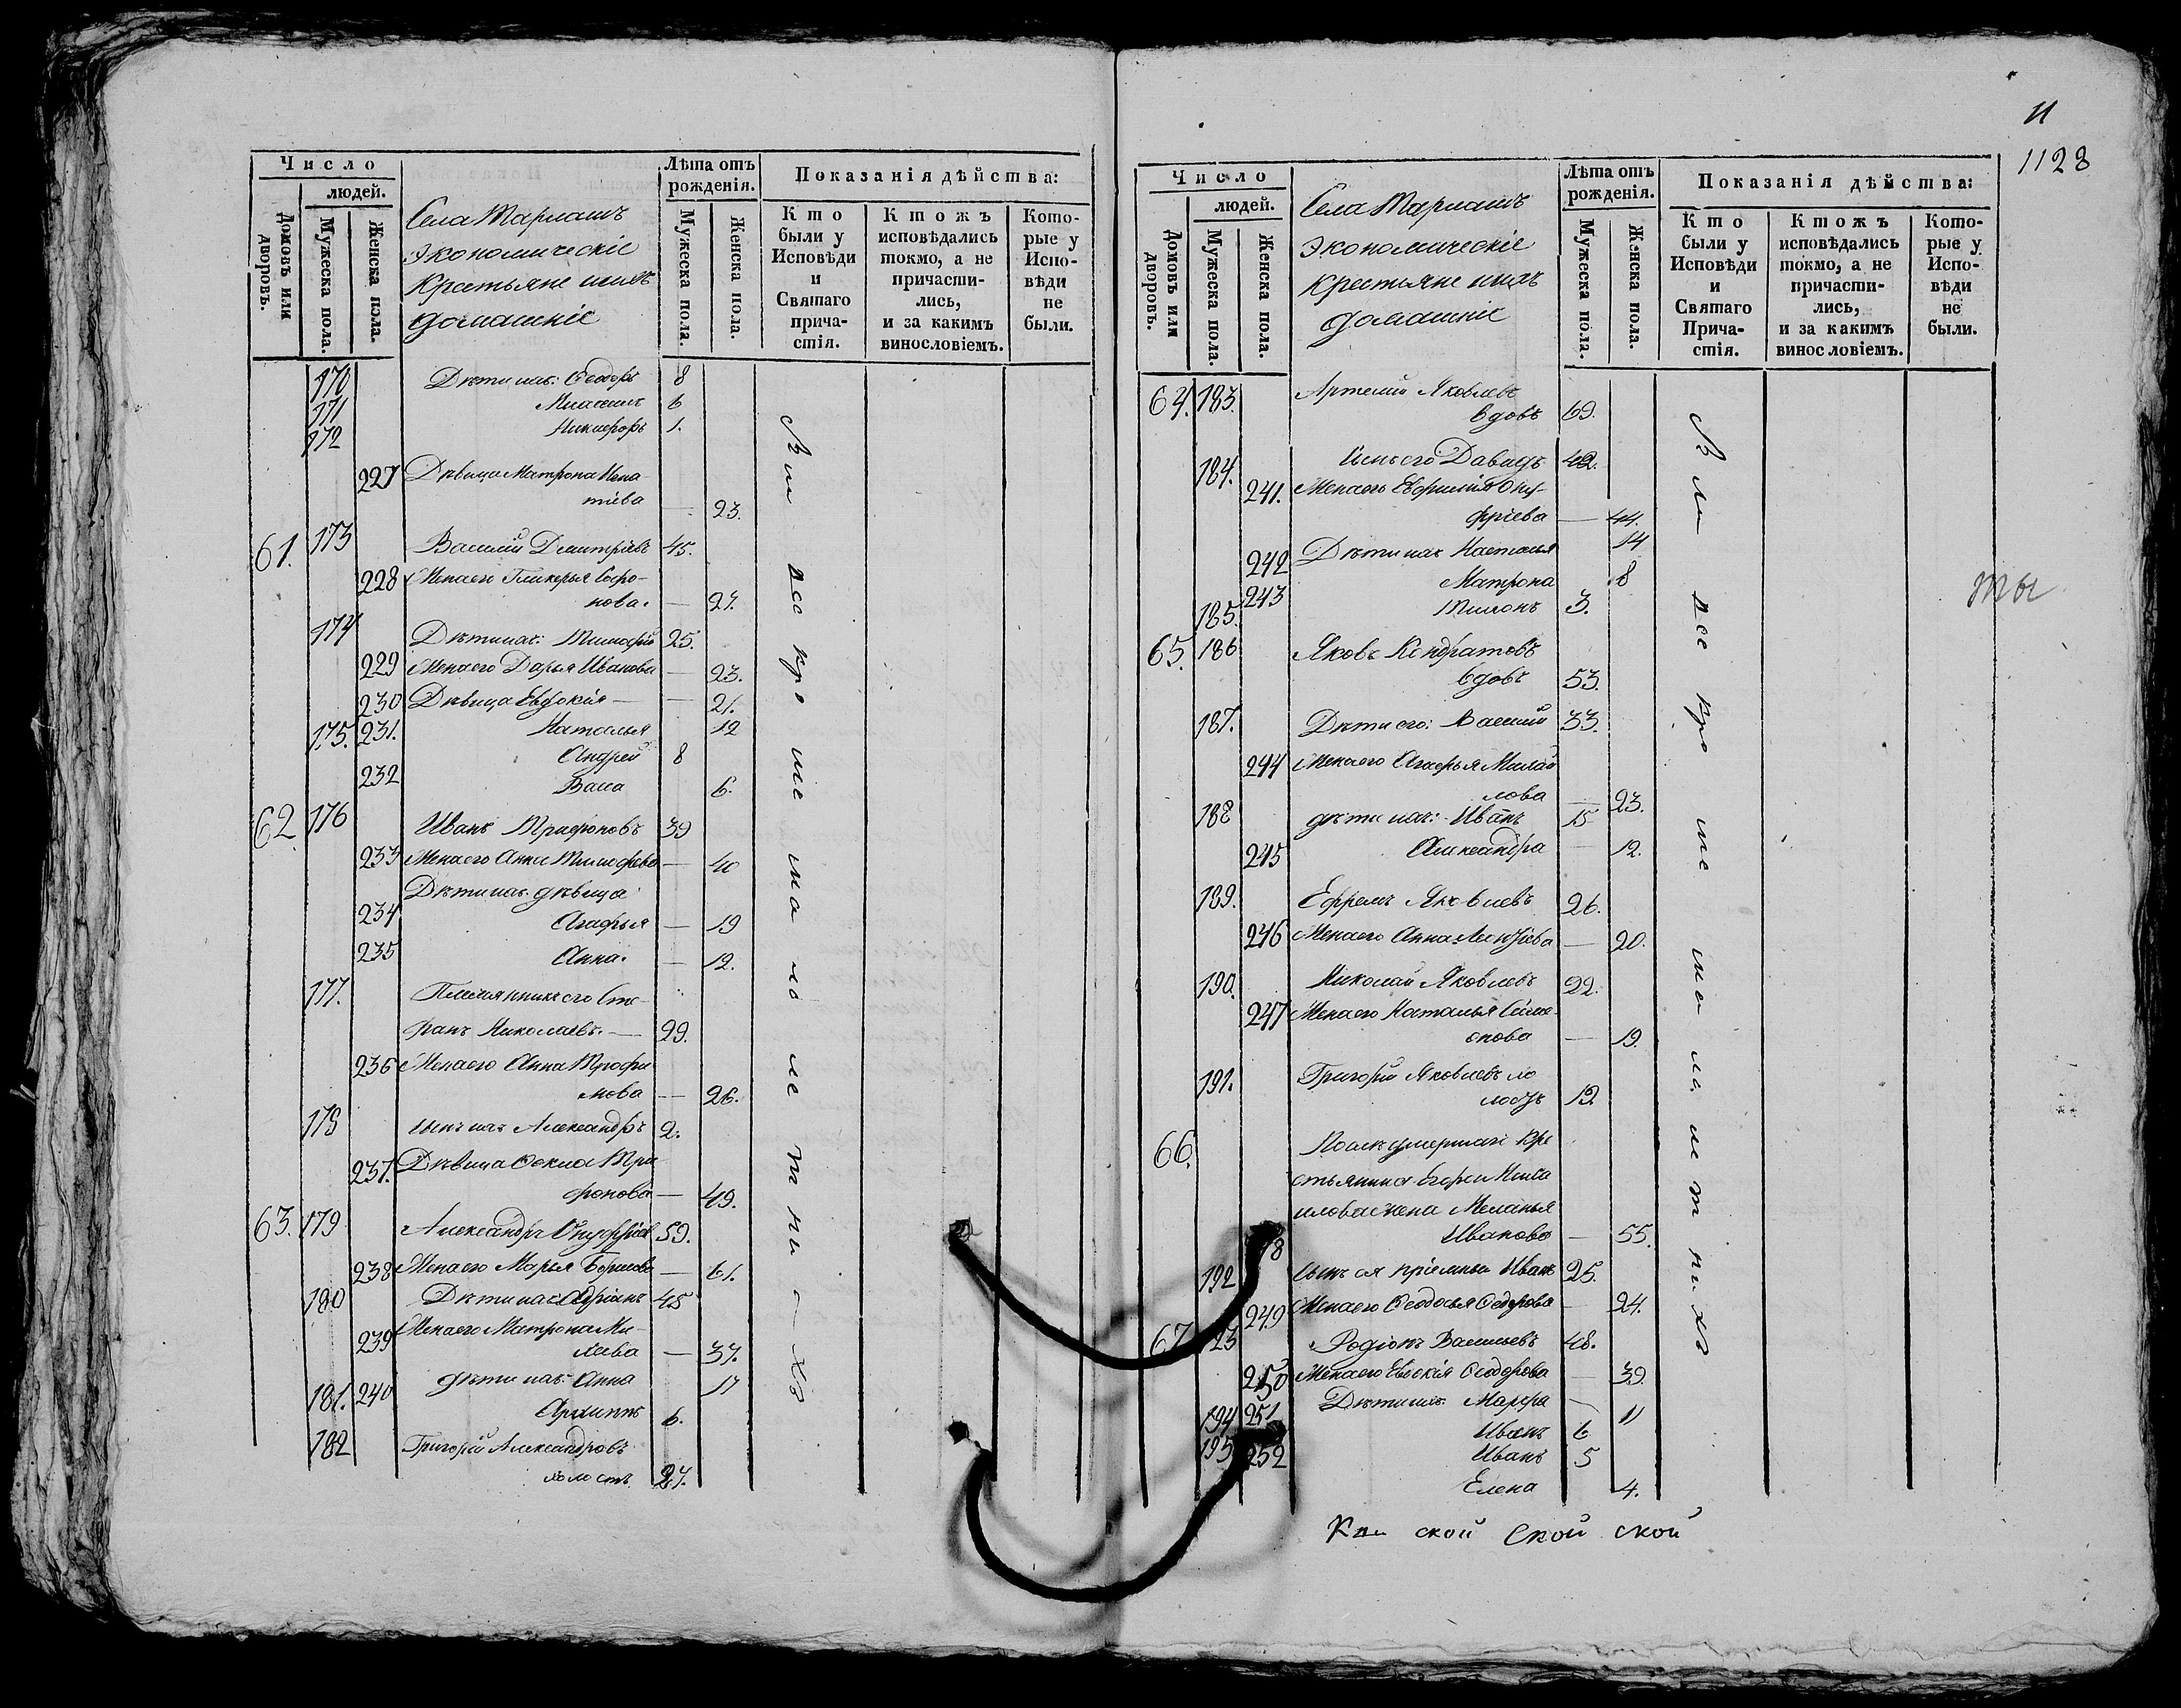 Число
людей.
Домовъ или дворовъ.
Мужеска пола.
Женска пола.
Села Тарлашъ
экономическіе
крестьяне ихъ
домашніе
Лѣта отъ
рожденія.
Мужеска пола.
Женска пола.
Показанія дѣйства:
Кто
были у
Исповѣди
и
Святаго
прича-
стія.
Ктожъ
исповѣдались
токмо, а не
причасти-
лись,
и за какимъ
винословіемъ.
Кото-
рые у
Испо-
вѣди
не
были.
170 Дѣти ихъ: Ѳеодоръ 8
171 6
172 Никифоръ 1.
227 Дѣвица Матрона Игна-
тіева — 23.
61. 173 Василій Димитріевъ 45.
228 Жена его Гликерья Софро-
нова. —
174 Дѣти ихъ: Тимофей 25.
229 Жена его Дарья Иванова — 23.
230 Дѣвица Евдокія — 21.
175. 231. Наталья 12
Андрей 8
232 Васса 6.
62 176 Иванъ Трифоновъ 39
233 Жена его Анна Тимофеева — 40
Дѣти ихъ дѣвица
234 Агафья — 19
235 Анна. — 12.
177. Племянникъ его Сте-
фанъ Николаевъ. — 29.
236 Жена его Анна Трофи
мова — 26.
178 сынъ ихъ Александръ 2.
237. Дѣвица Ѳекла Три
фонова — 49.
63. 179 Александръ Онуфріевъ 59.
238 Жена его Марья Борисова — 61.
180 Дѣти ихъ Адріанъ 45
239 Жена его Матрона Ми-
— 37.
181. 240 дѣти ихъ: Анна 17
Архиппъ 6.
182 Григорій Александровъ
холостъ 27.
Вси все кро ме ма ло ле т ни хъ
11
1128
Число
людей.
Домовъ или дворовъ.
Мужеска пола.
Женска пола.
Села Тарлашъ
экономическіе
крестьяне ихъ
домашніе
Лѣта отъ
рожденія.
Мужеска пола.
Женска пола.
Показанія дѣйства:
Кто
были у
Исповѣди
и
Святаго
Прича-
стія.
Ктожъ
исповѣдались
токмо, а не
причасти-
лись,
и за какимъ
винословіемъ.
Кото-
рые у
Испо-
вѣди
не
были.
64. 183. Артемій Яковлевъ
вдовъ 69.
184. Сынъ его Давидъ 42.
241. Жена его Евфимія Ону-
фріева — 44.
242 Дѣти ихъ Наталья 14
243 Матрона 8
185. Тихонъ 3.
65. 186 Яковъ Кондратовъ
вдовъ 53.
187. Дѣти его: Василій 33.
244 Жена его Агафья Михай
лова — 23.
188 дѣти ихъ: Иванъ 15
245 Александра — 12.
189. Ефремъ Яковлевъ 26.
246 Жена его Анна — 20.
190. Николай Яковлевъ 22.
247 Жена его Наталья Симе-
онова — 19.
191. Григорій Яковлевъ хо
лостъ 19
66. Послѣ умершаго кре
стьянина Егора Миха
илова жена Меланья
248 Иванова — 55.
192 сынъ ея пріемный Иванъ 25.
249 Жена его Ѳеодосья Ѳедорова — 24.
67 193 Родіонъ Васильевъ 48.
250 Жена его Евдокія Ѳеодорова — 39.
251 Дѣти ихъ: Марфа — 11
194 Иванъ 6
195 Иванъ 5
252 Елена 4.
Вси все кро ме ма ло ле т ни хъ
ты
ской ской ской